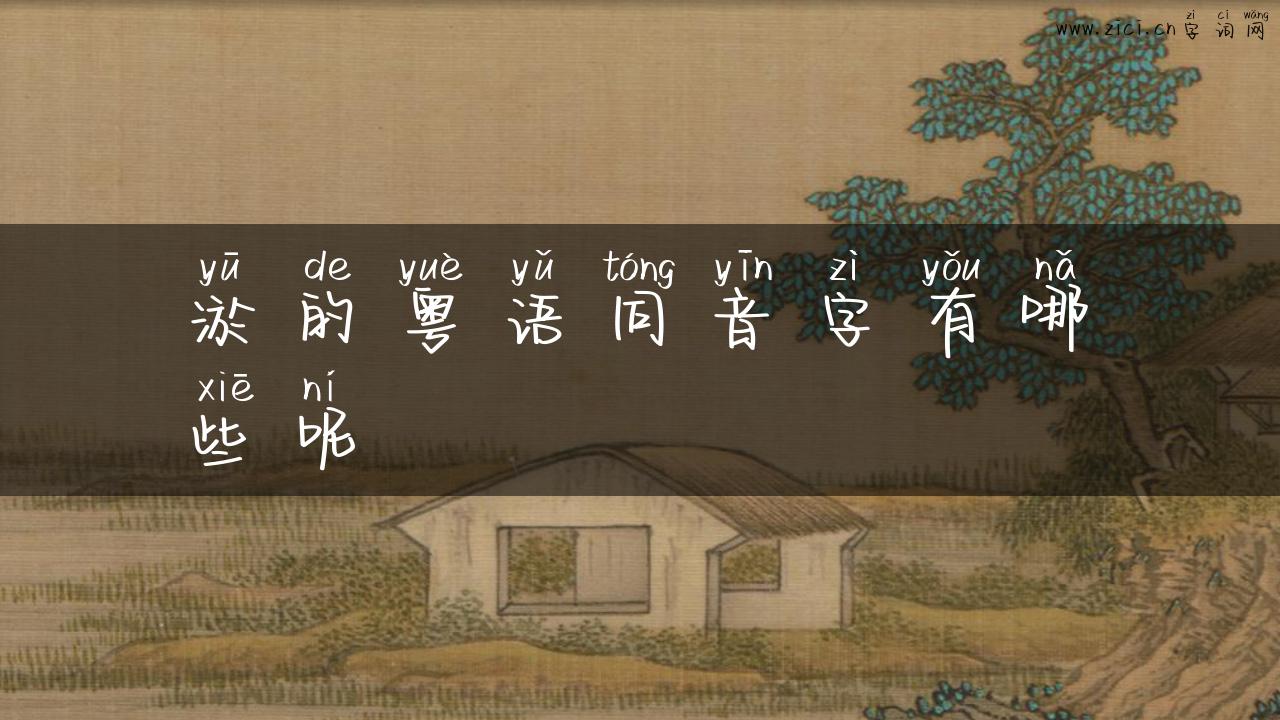 zì cí wǎng
www.zici.cn 字词网
yū de yuè yǔ tóng yīn zì yǒu nǎ
淤的粤语同音字有哪
xiē ní
些呢